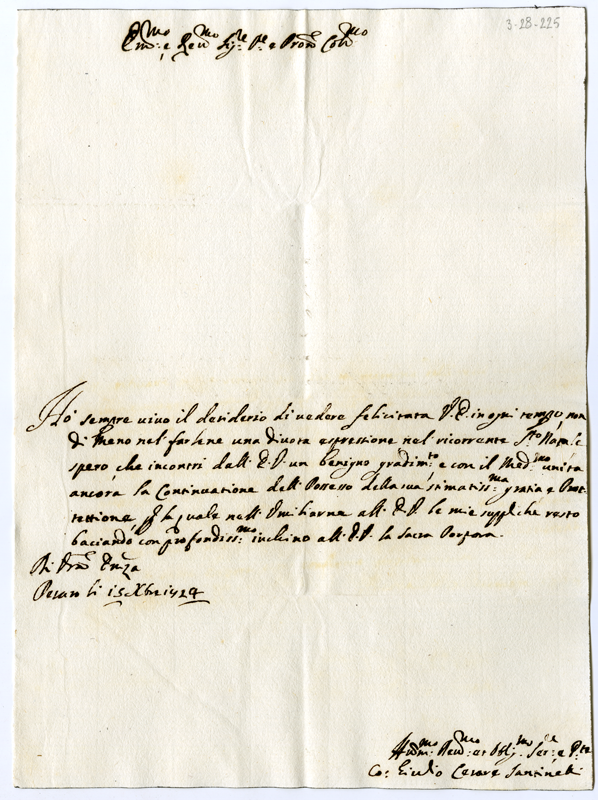 3-28-225
Em:mo e Rev:mo Sig:re P.e e Pron Col:mo
Hò sempre vivo il desiderio di vedere felicitata V.E. in ogni tempo, non
di meno nel farlene una divota espressione nel ricorrente S:to Natale
spero, che incontri dall' E.V. un benigno gradim:to e con il Med:mo unita
ancora la Continuatione dell Possesso della sua stimatiss:ma gratia e Prot-
tettione, la quale nell' Umiliarne all' E.V. le mie suppliche resto
baciando con profondiss:mo inchino all' E.V. la Sacra Porpora.
Di Vra Em:za
Pesaro li 15 Xbre 1724
Hum:mo Dev:mo et obblig:mo Ser:e
Co: Giulio Cesare Santinelli